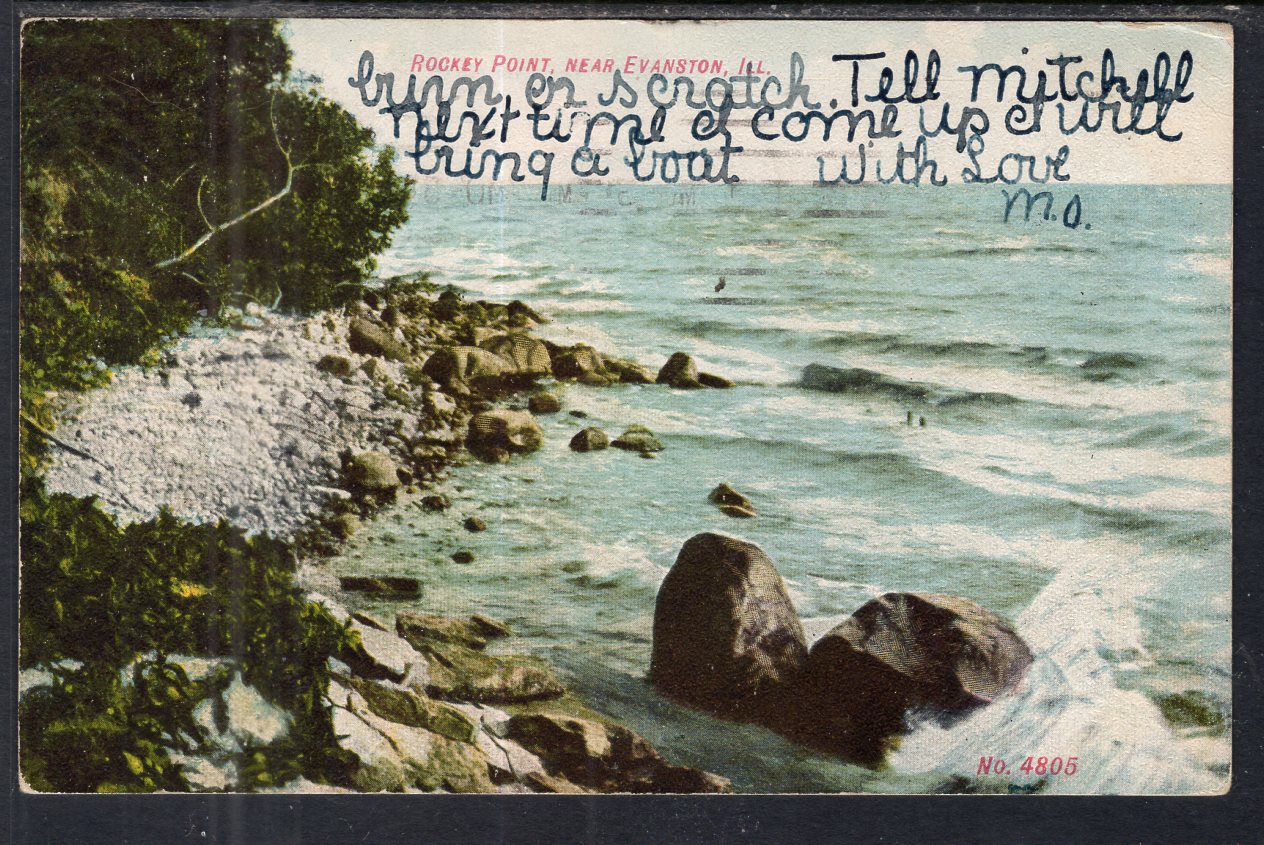 ROCKEY POINT, NEAR EVANSTON, ILL.
burn or scratch. Tell mitchell
next time I come up I will
bring a boat. with Love
M.O.
No. 4805